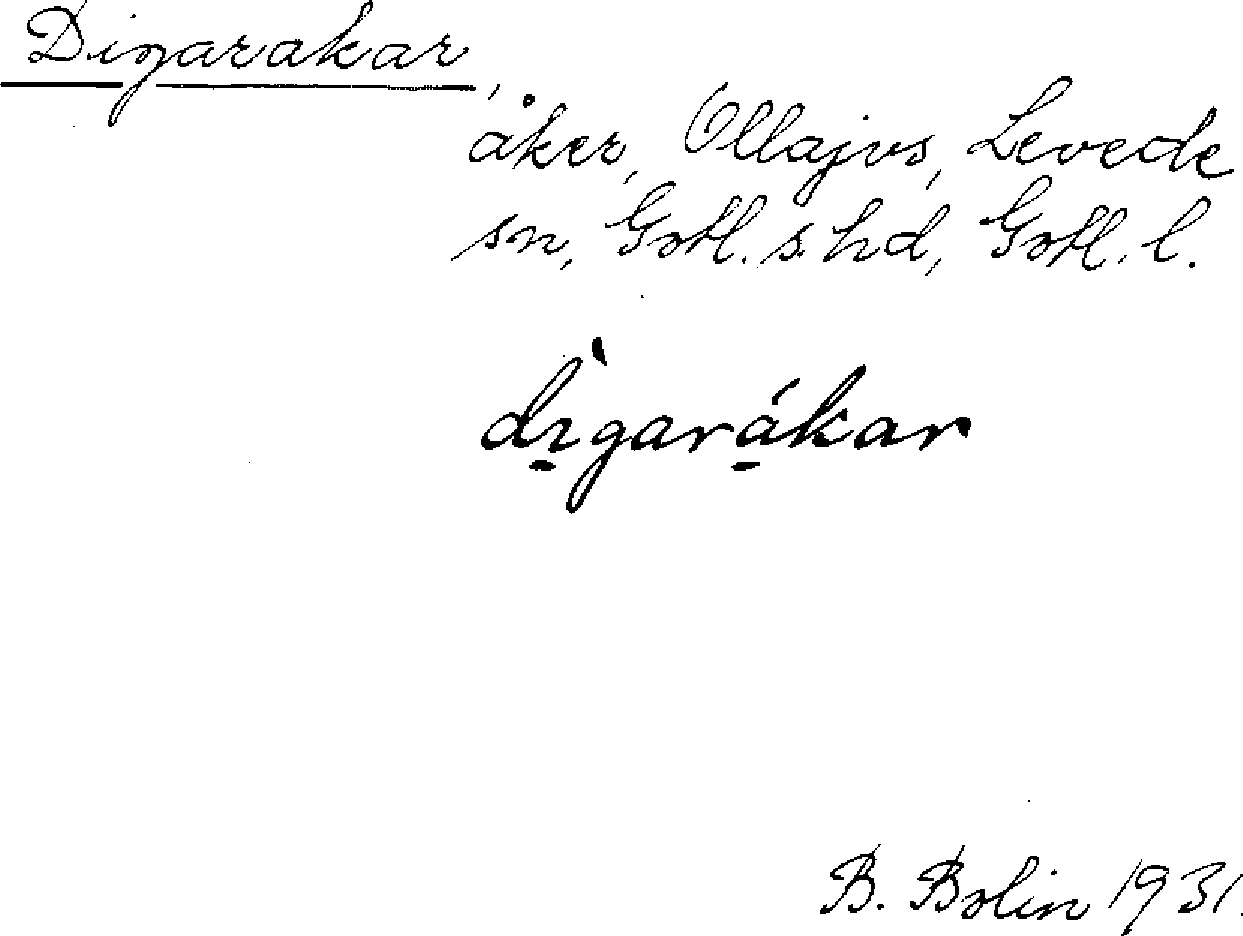 Digarakar,
åker, Ollajvs, Levede
sn, Gotl. s. hd, Gotl. l.
dı̱̀gará̱kar
B. Bolin 1931.